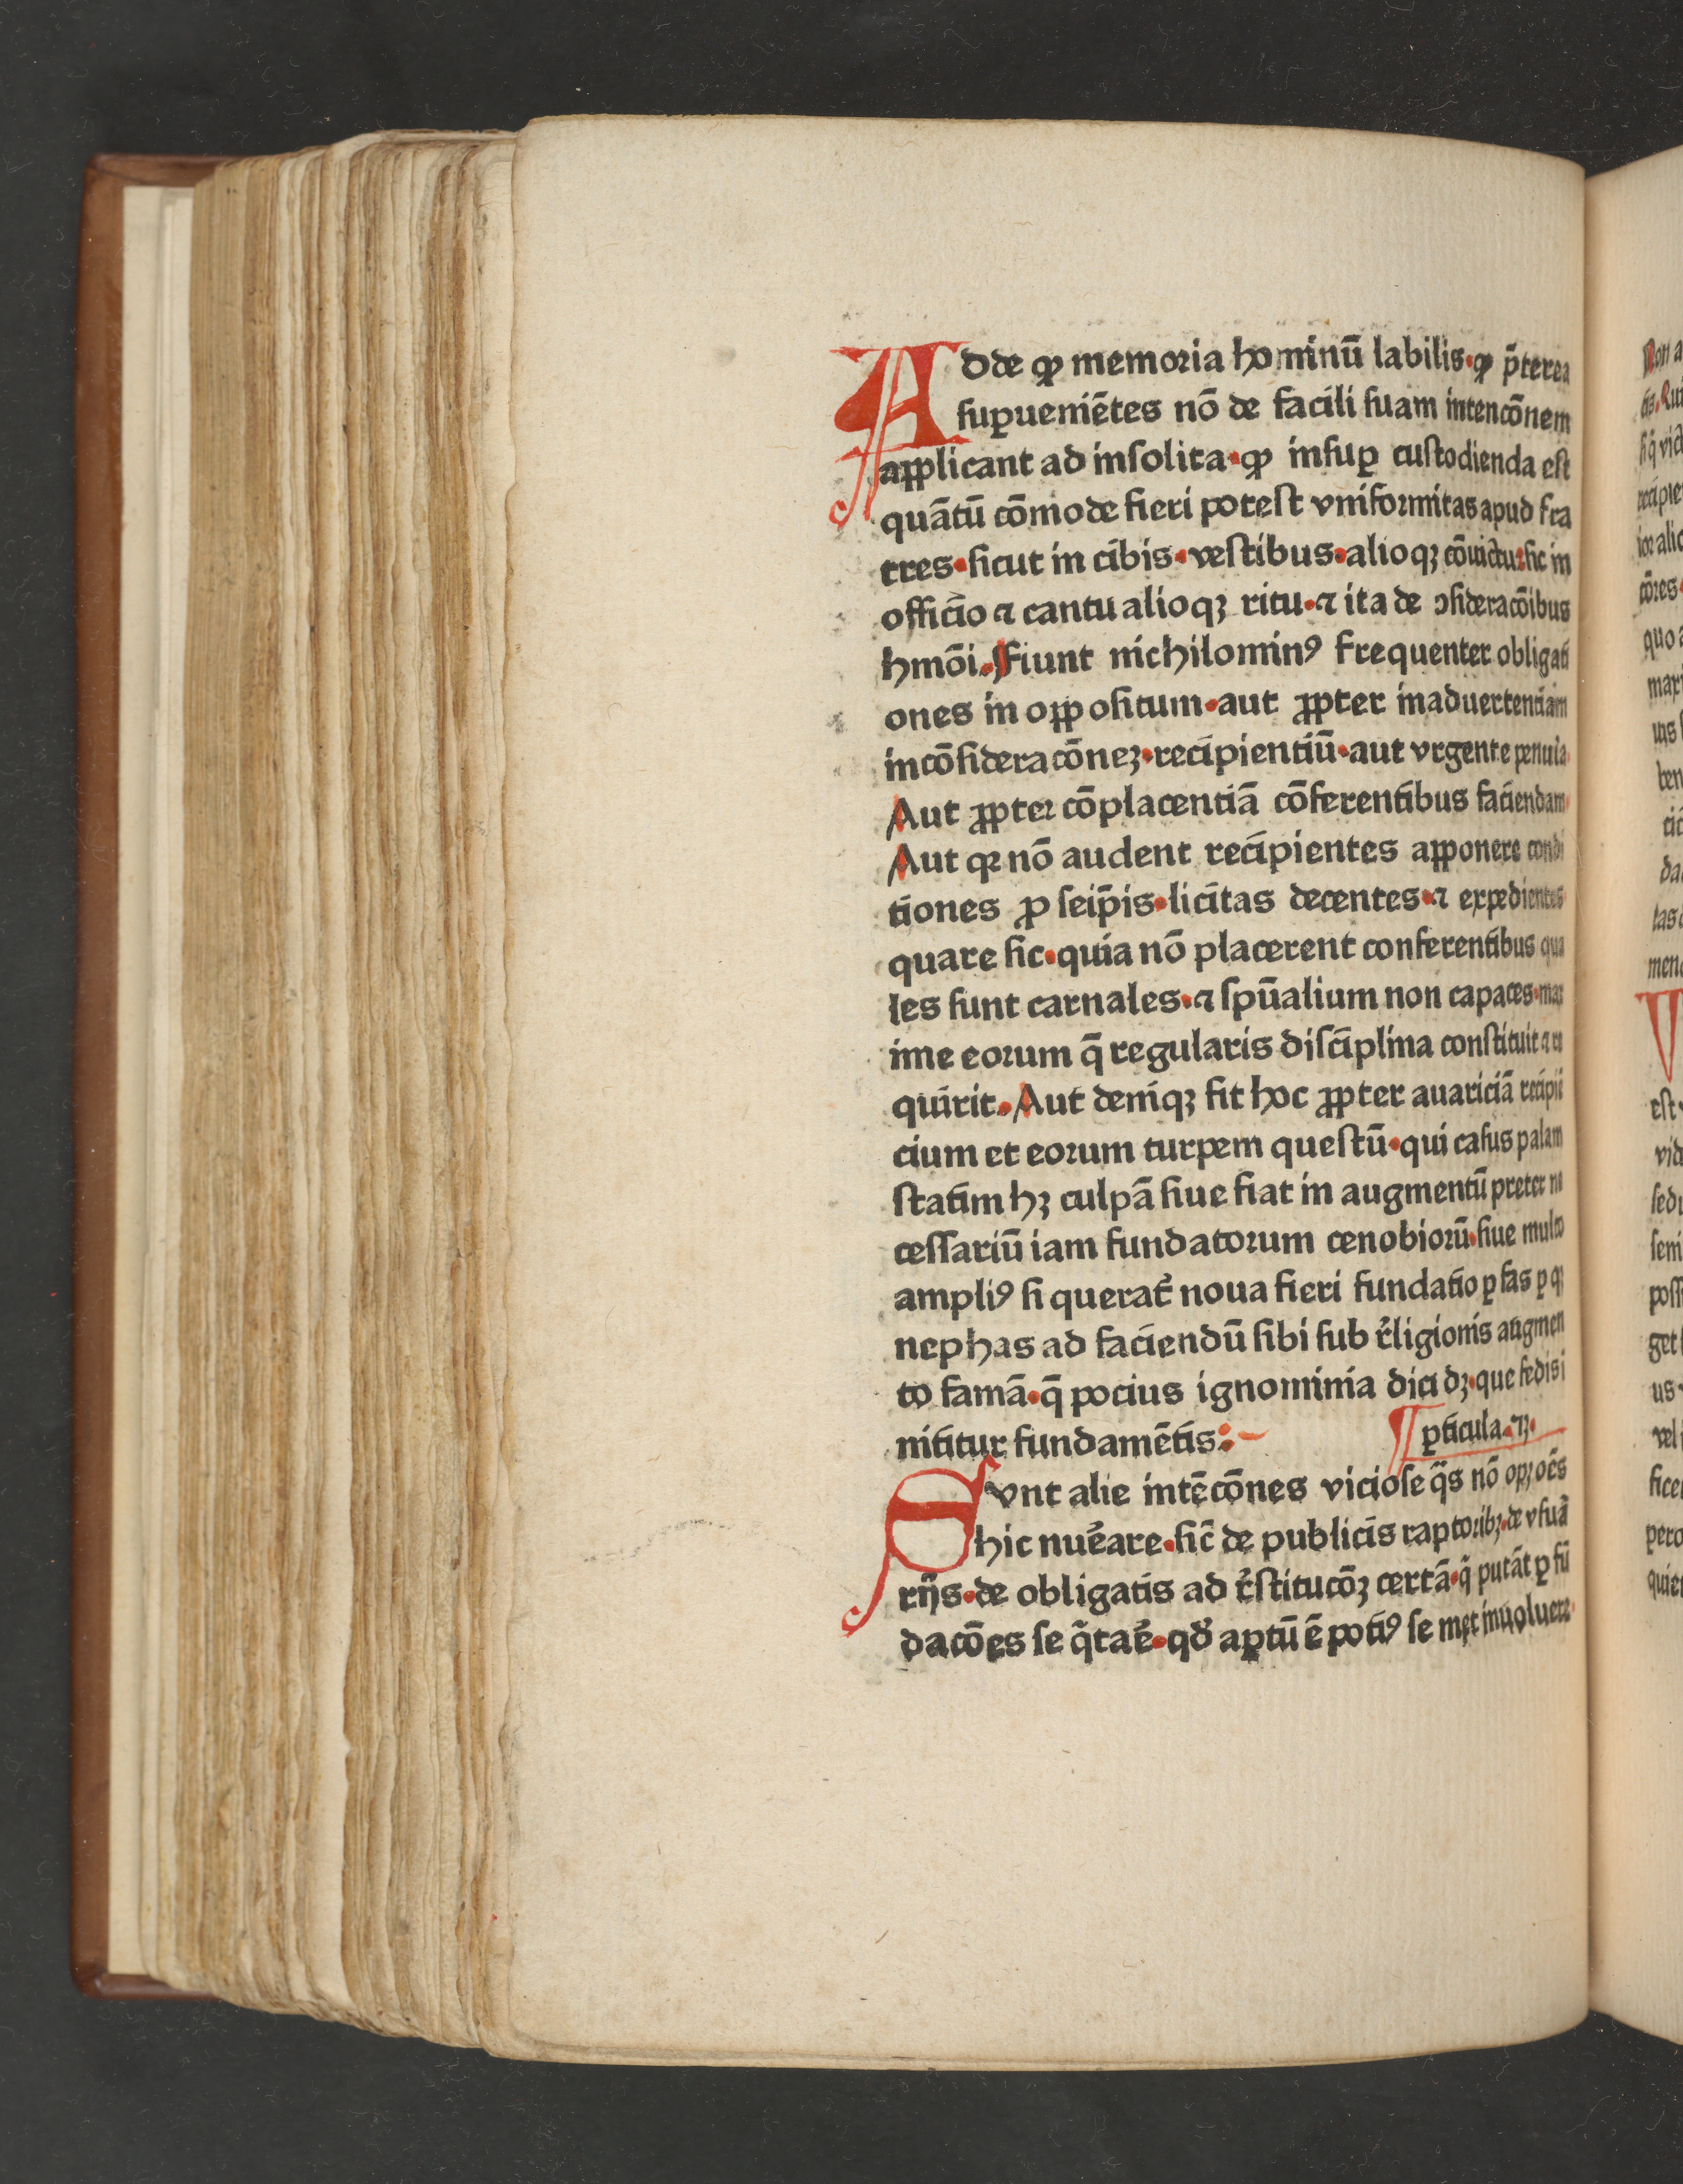 Adde ꝙ memoria hominū labilis·ꝙ p̄terea
suꝑueniētes nō de facili suam intencōnem
aꝓplicant ad insolita·ꝙ insuꝑ custodienda est
quātū cōmode fieri potest vniformitas apud fra
tres·sicut in cibis·vestibus·alioqꝫ cōuictu:sic in
officio ⁊ cantu alioqꝫ ritu·⁊ ita de ↄsideracōibus
hmōi.Fiunt nichilominꝰ frequenter obligati
ones in oppositum·aut ꝓpter inaduertentiam
incōsideracōneꝫ·recipientiū·aut vrgente penuia·
Aut ꝓpter cōplacentiā cōferentibus faciendam·
Aut qꝛ nō audent recipientes apponere condi
tiones ꝓ seip̄is·licitas decentes·⁊ expedientes
quare sic·quia nō placerent conferentibus qua
les sunt carnales·⁊ spūalium non capaces·max
ime eorum q̄ regularis disciplina constituit ⁊ re
quirit.Aut deniqꝫ fit hoc ꝓpter auariciā recipiē
cium et eorum turpem questū·qui casus palam
statim hꝫ culpā siue fiat in augmentū preter ne
cessariū iam fundatorum cenobiorū·siue multo
ampliꝰ si querat᷑ noua fieri fundatio ꝑ fas ꝑ qꝫ
nephas ad faciendū sibi sub r̓ligionis augmen
to famā·q̄ pocius ignominia dici dꝫ·que fedis i
nititur fundamētis:
¶ ꝑticula·⁊ꝫ·
Svnt alie intēcōnes viciose q̄s nō opꝫ oēs
hic nūe̓are·sic̄ de publicis raptoribꝫ·de vsua
rijs·de obligatis ad r̓stitucōꝫ certā·q̄ putāt ꝑ fū
dacōes se q̄tae̓·qđ aꝑtū ē potiꝰ se met inuoluere·